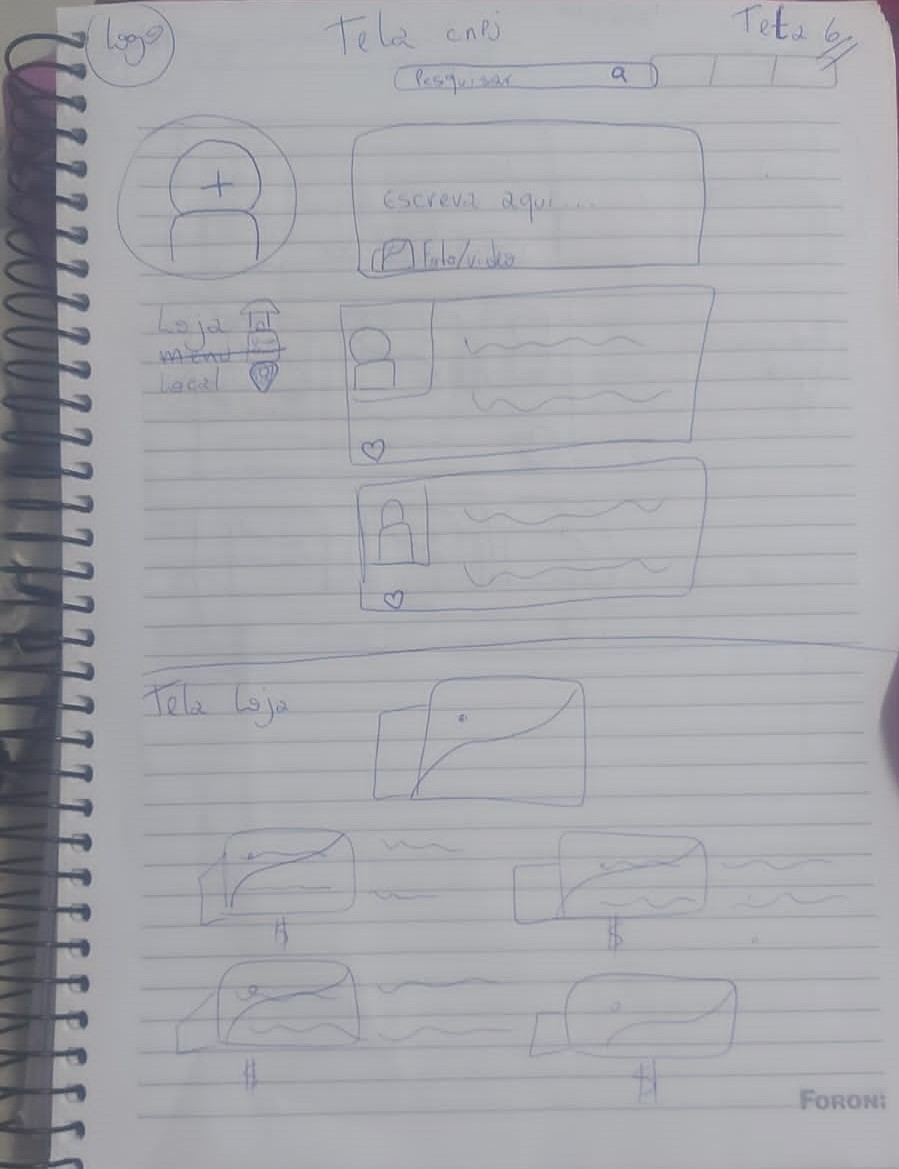 Logo
Tela cnpj
Tela 6
Pesquisar
Escreva aqui...
Foto/video
Loja
menu
Local
Tela Loja
$
$
$
$
FORONI